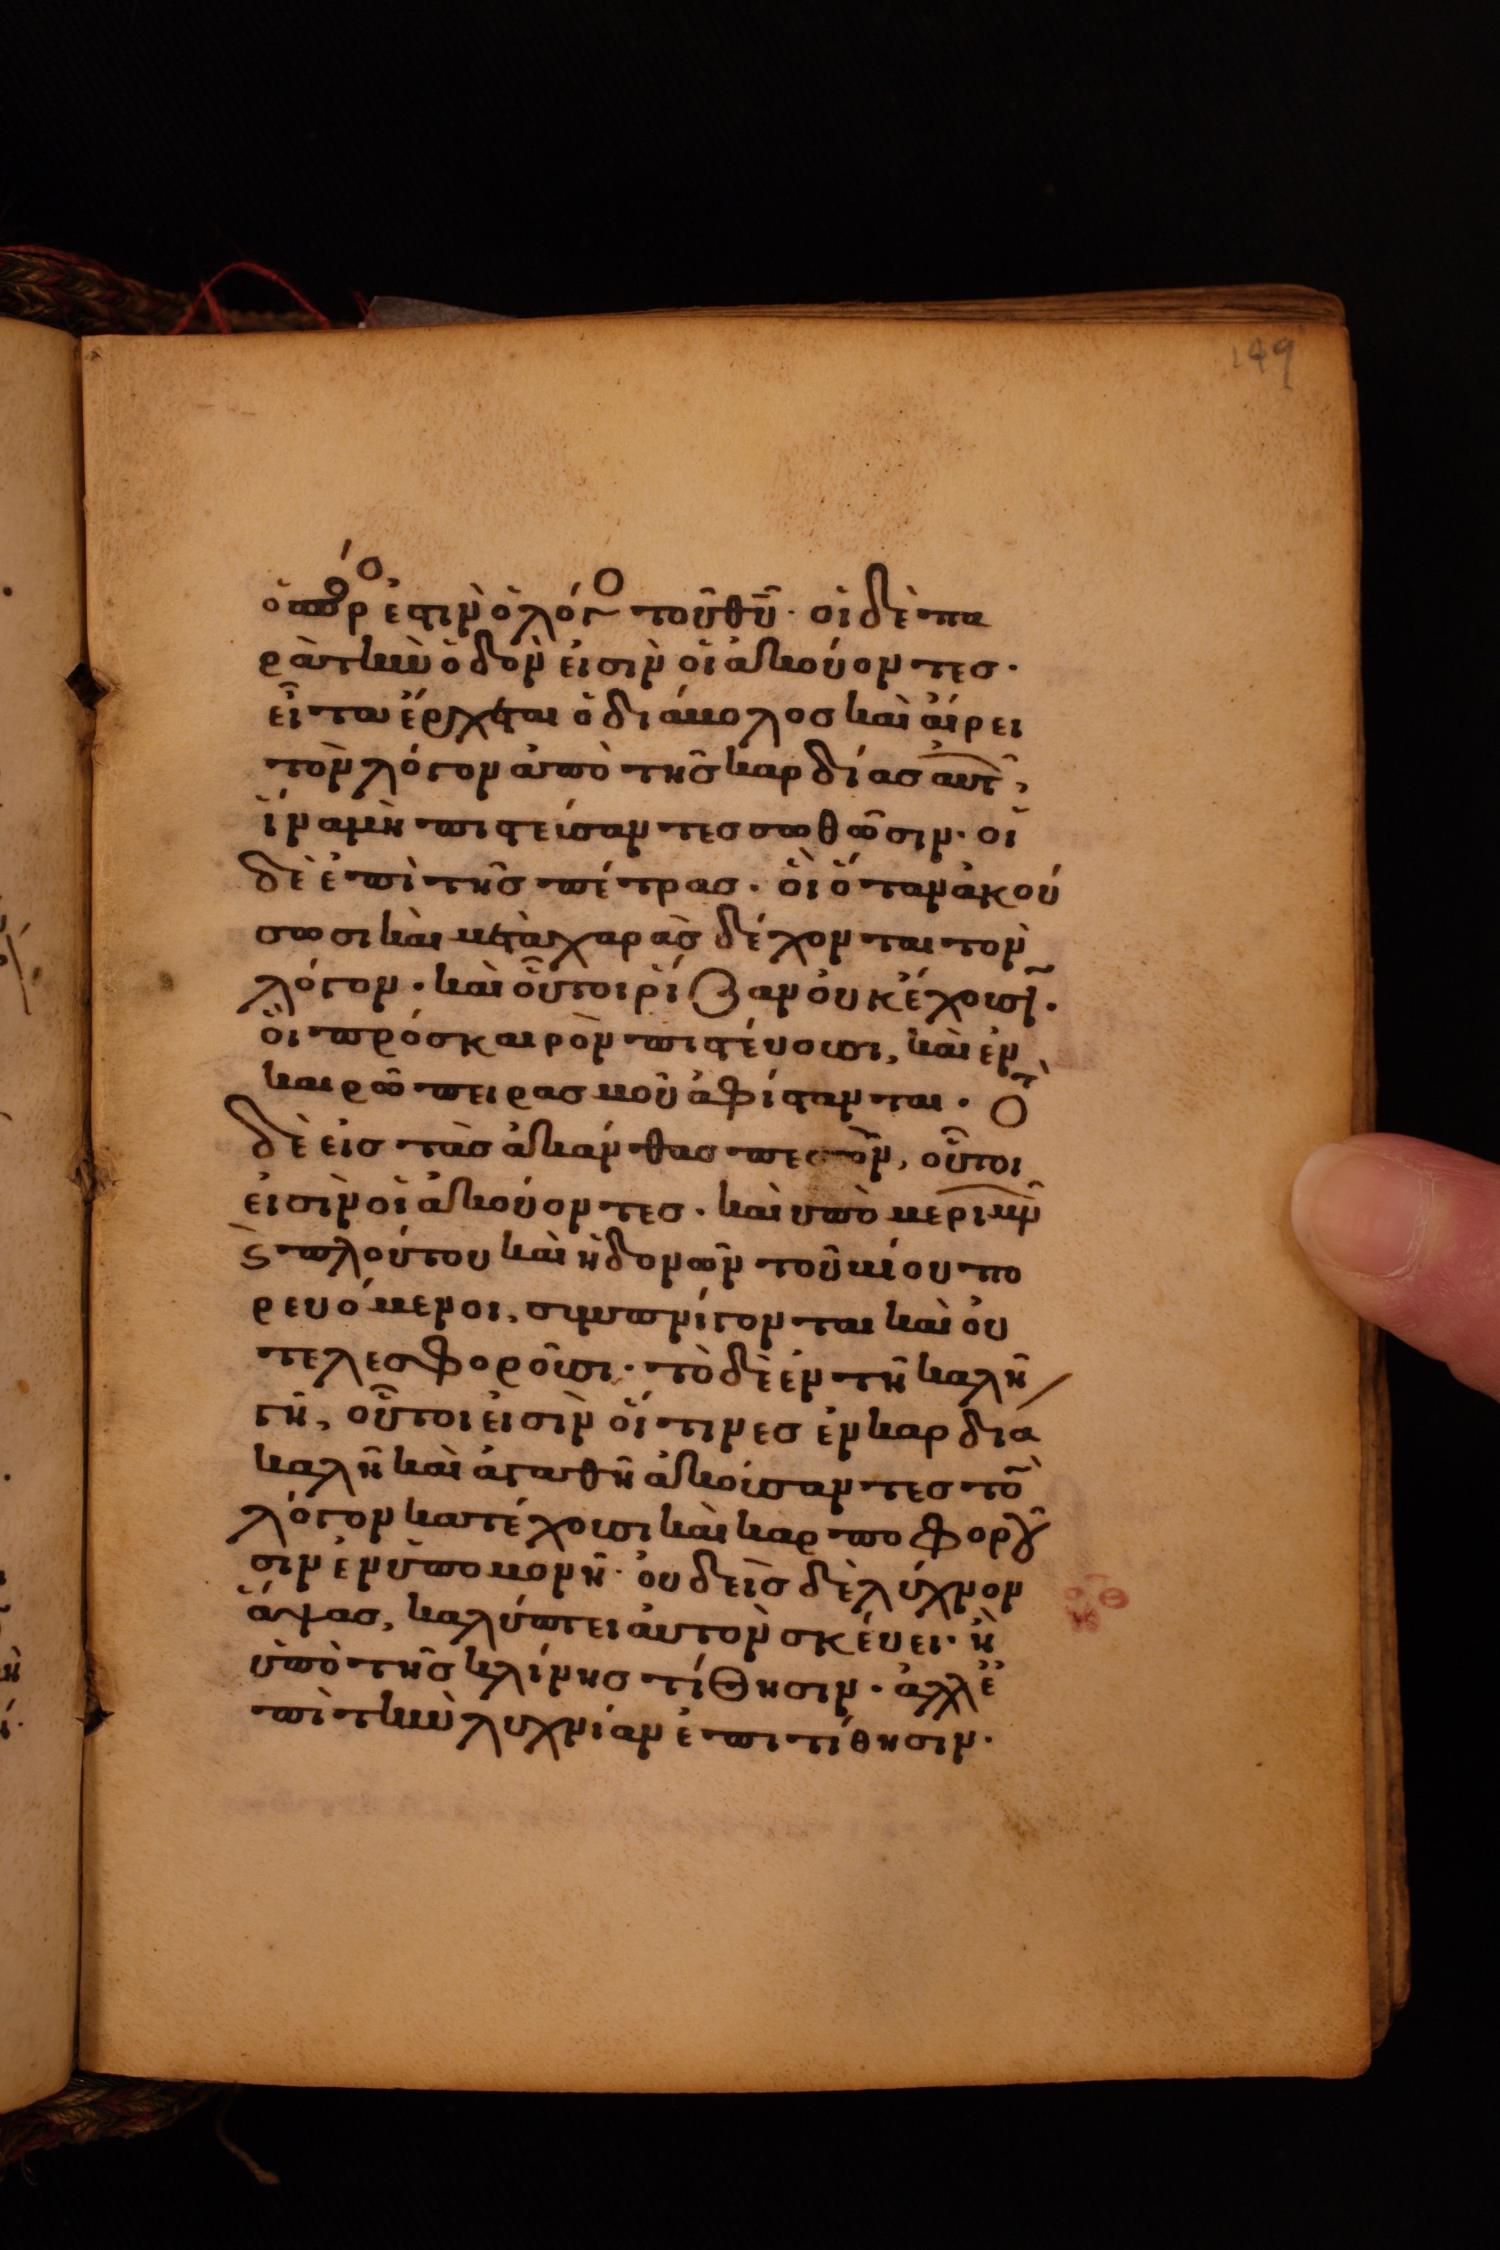 149
ὁ σπόρ ἐστὶν ὁ λόγο τοῦ θῦ· οἱ δὲ πα
ρὰ τὴν ὁδὸν εἰσὶν οἱ ἀκούοντεσ·
εἶτα ἔρχεται ὁ διάβολοσ καὶ αἴρει
τὸν λόγον ἀπὸ τῆσ καρδίασ αὐτ,
ἵνα μὴ πιστεύσαντεσ σωθῶσιν· οἱ
δὲ ἐπὶ τῆσ πέτρασ· οἳ ὅταν ἀκού
σωσι καὶ μετὰ χαρᾶσ δέχονται τὸν
λόγον· καὶ οὗτοι ρίζαν οὐκ έχουσι·
οἳ πρόσκαιρὸν πιστέυουσι, καὶ ἐν
καιρῶ πειρασμοῦ ἀφίστανται· ὁ τ
δὲ εἰσ τὰσ ἀκάνθασ πεσὸν, οὗτοι
εἰσὶν οἱ ἀκούοντεσ· καὶ ὑπὸ μεριμν
ϛ πλούτου καὶ ἡδονῶν τοῦ βίου πο
ρευόμενοι, συμπνίγονται καὶ οὐ
τελεσφοροῦσι· τὸ δὲ ἐν τῆ καλῆ
γῆ, οὗτοι εἰσὶν οἵτινεσ ἐν καρδία
καλῆ καὶ ἀγαθῆ ἀκούσαντεσ τὸ
λόγον κατέχουσι καὶ καρποφοροῦ
σιν ἐν ὑπομονῆ· οὐδεὶσ δὲ λύχνον
ἅψασ, καλύπτει ἀυτὸν σκέυει· ἢ
ὑπὸ τῆσ κλίνησ τίθησιν· ἀλλ ἐ
πὶ τὴν λυχνίαν ἐπιτίθησιν·